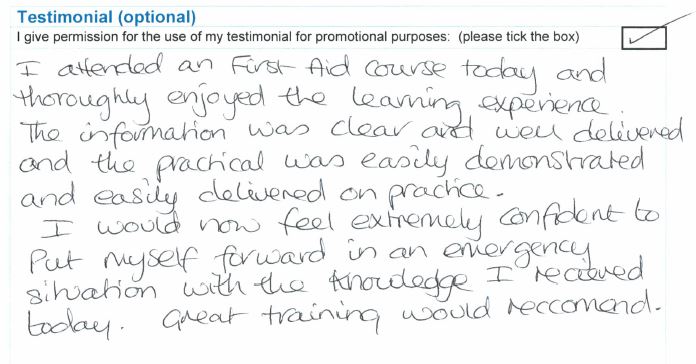 Testimonial (optional)
I give permission for the use of my testimonial for promotional purposes: (please tick the box)
I attended an First Aid course today and
thoroughly enjoyed the learning experience.
The information was clear and well delivered
and the practical was easily demonstrated
and easily delivered on practice.
I would now feel extremely confident to
Put myself forward in an emergency
situation with the knowledge I recieved
today. Great training would reccomend.